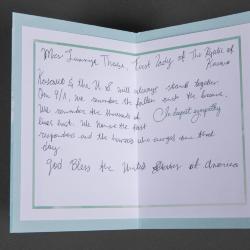 Mrs Jumnije Thaçi, First Lady of The Republic of
Kosovo
Kosovo & the U.S will always stand together.
On 9/11, we remember the fallen and the brave.
We remember the thousands of
In deepest sympathy
lives lost. We honor the first
responders and the heroes who emerged from that
day.
God Bless the United States of America